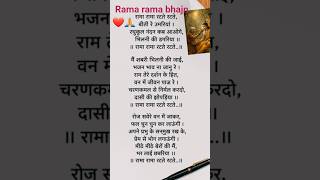 Rama rama bhajn
❤️🙏
रामा रामा रटते रटते,
बीती रे उमरिया ।
रघुकुल नंदन कब आओगे,
भिलनी की डगरिया ॥
॥ रामा रामा रटते रटते..॥
मैं शबरी भिलनी की जाई,
भजन भाव ना जानु रे ।
राम तेरे दर्शन के हित,
वन में जीवन पालूं रे ।
चरणकमल से निर्मल करदो,
दासी की झोपड़िया ॥
॥ रामा रामा रटते रटते..॥
रोज सवेरे वन में जाकर,
फल चुन चुन कर लाऊंगी ।
अपने प्रभु के सन्मुख रख के,
प्रेम से भोग लगाऊंगी ।
मीठे मीठे बेरों की मैं,
भर लाई छबरिया ॥
॥ रामा रामा रटते रटते..॥